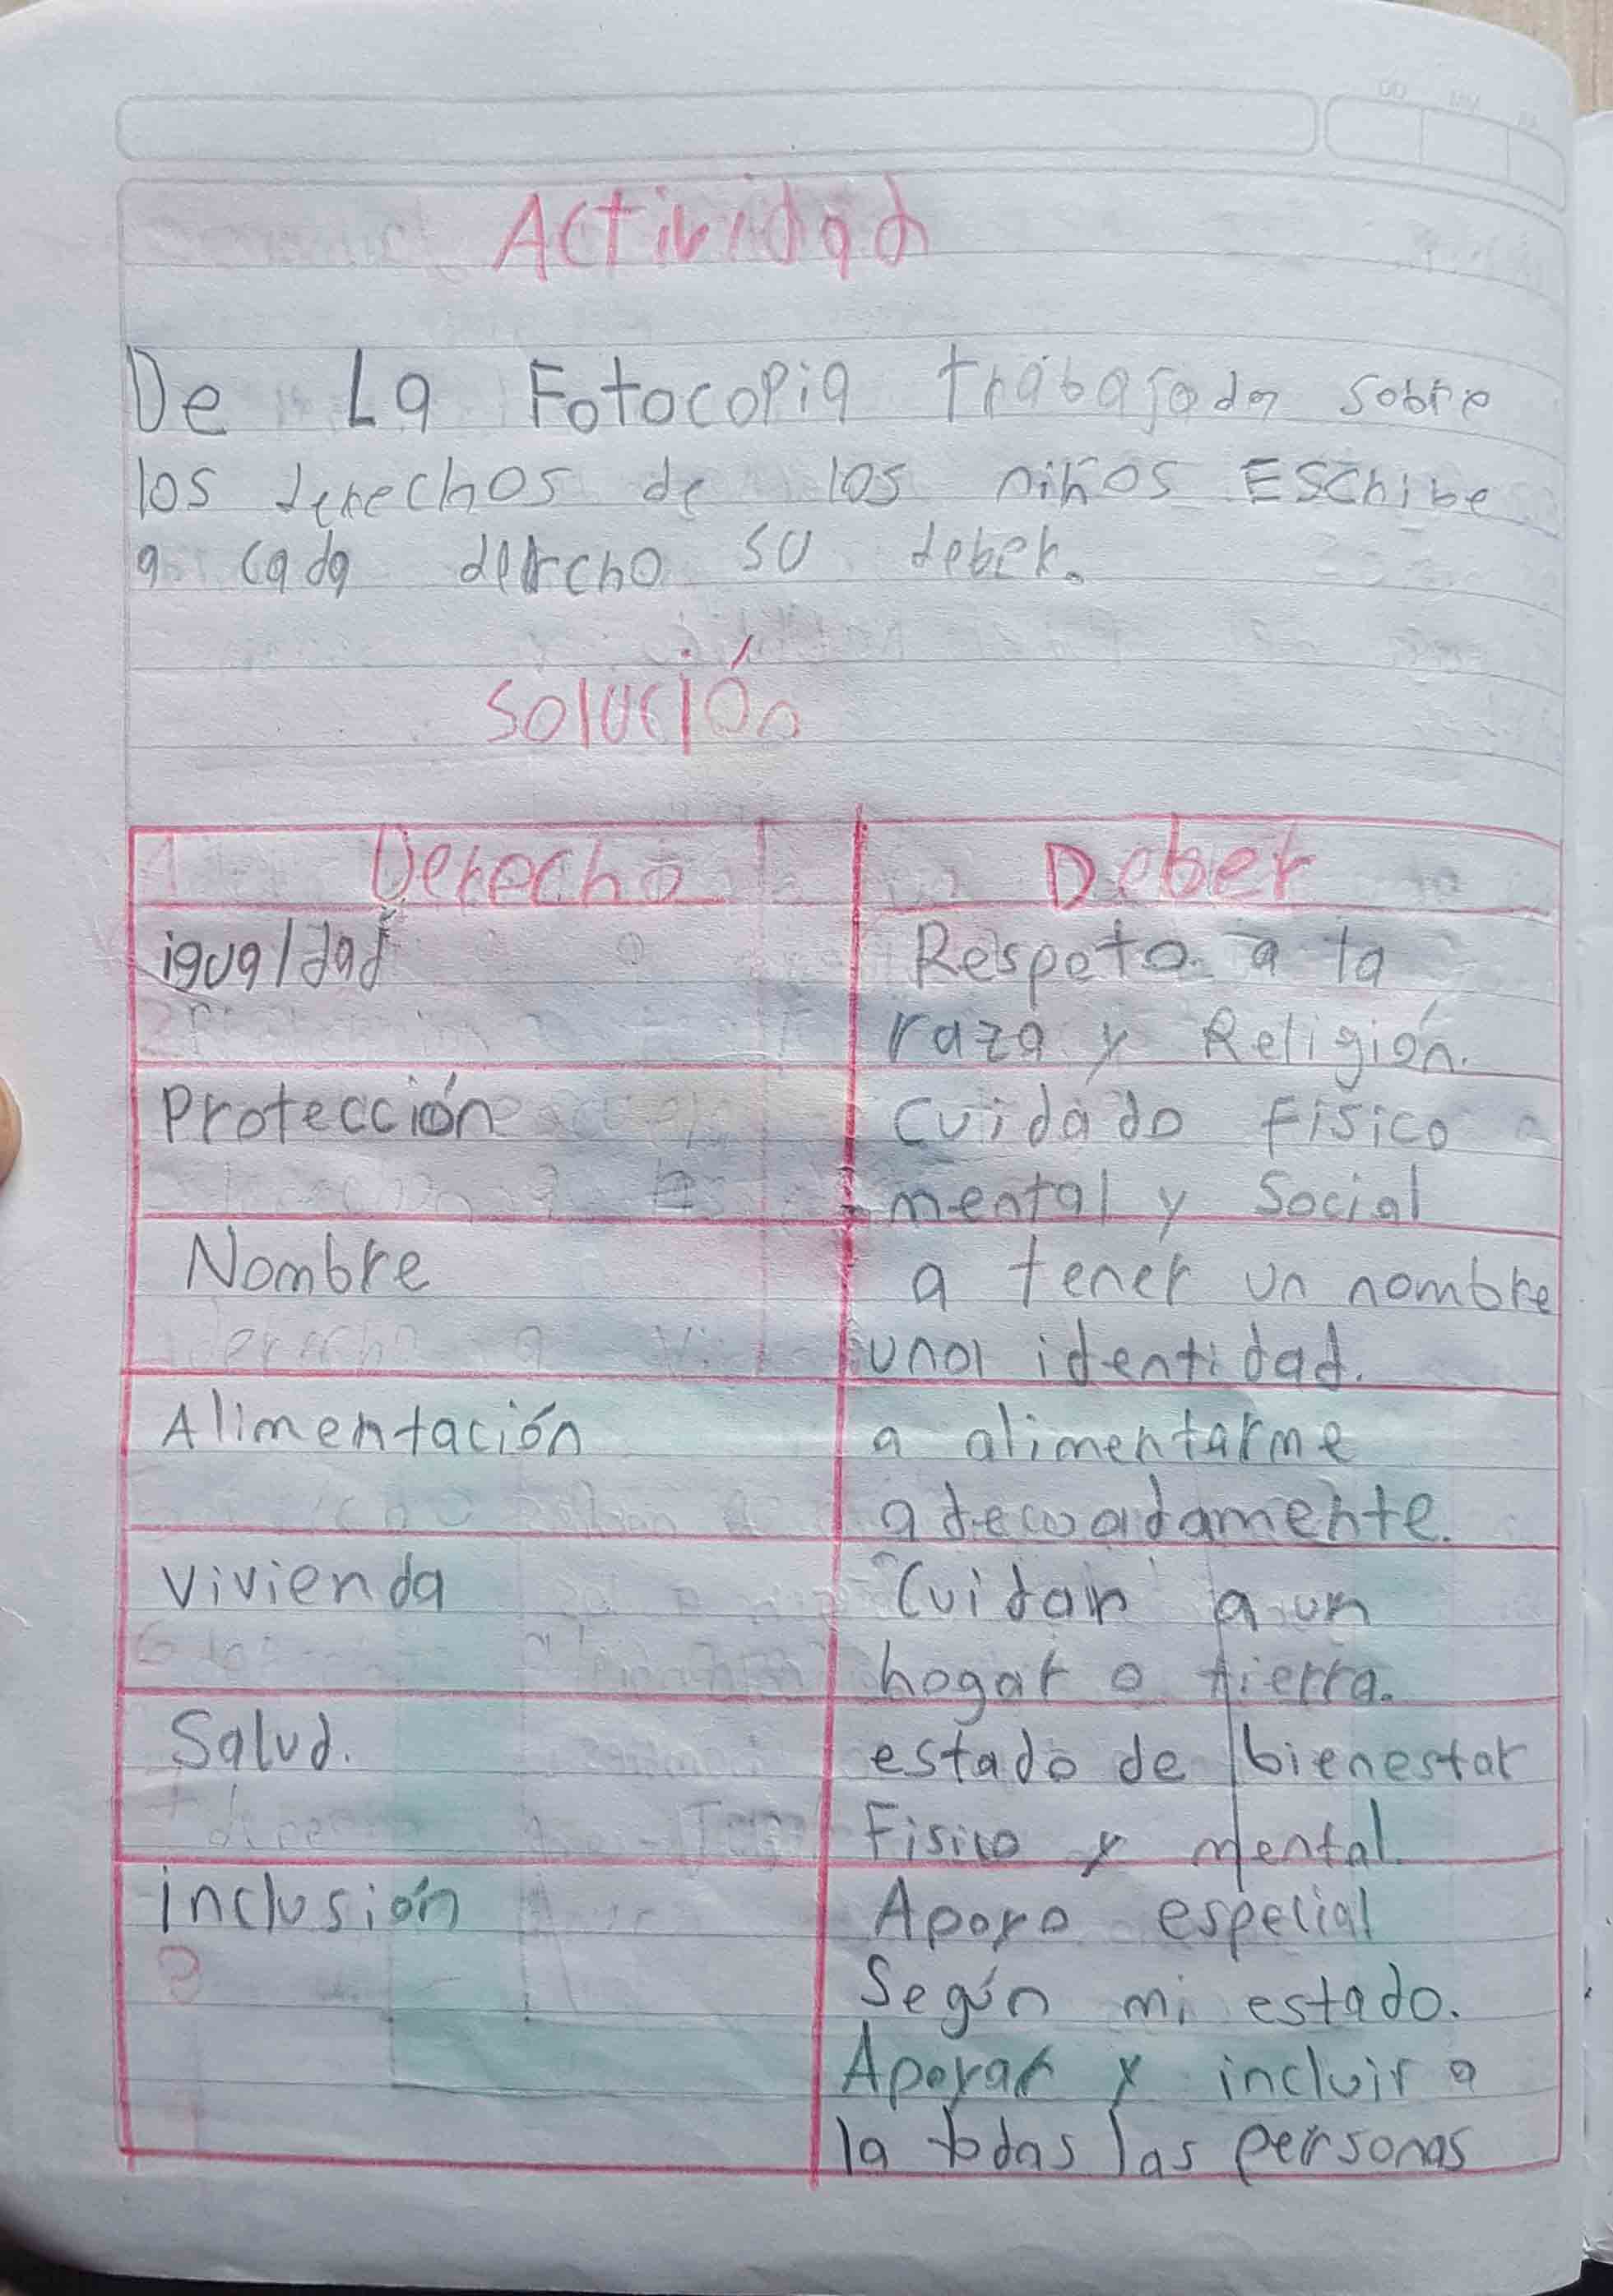 Actividad
De La Fotocopia trabajada sobre
los derechos de los niños Escribe
a cada derecho su deber.
Solución
Derecho Deber
igualdad Respeto a la
raza y Religión.
Protección Cuidado Fisico
mental y Social
Nombre a tener un nombre
una identidad.
Alimentación a alimentarme
adecuadamente.
Vivienda Cuidar a un
hogar o tierra.
Salud. estado de bienestar
Fisico y mental.
inclusión Apoyo especial
Según mi estado.
Apoyar y incluir a
la todas las personas